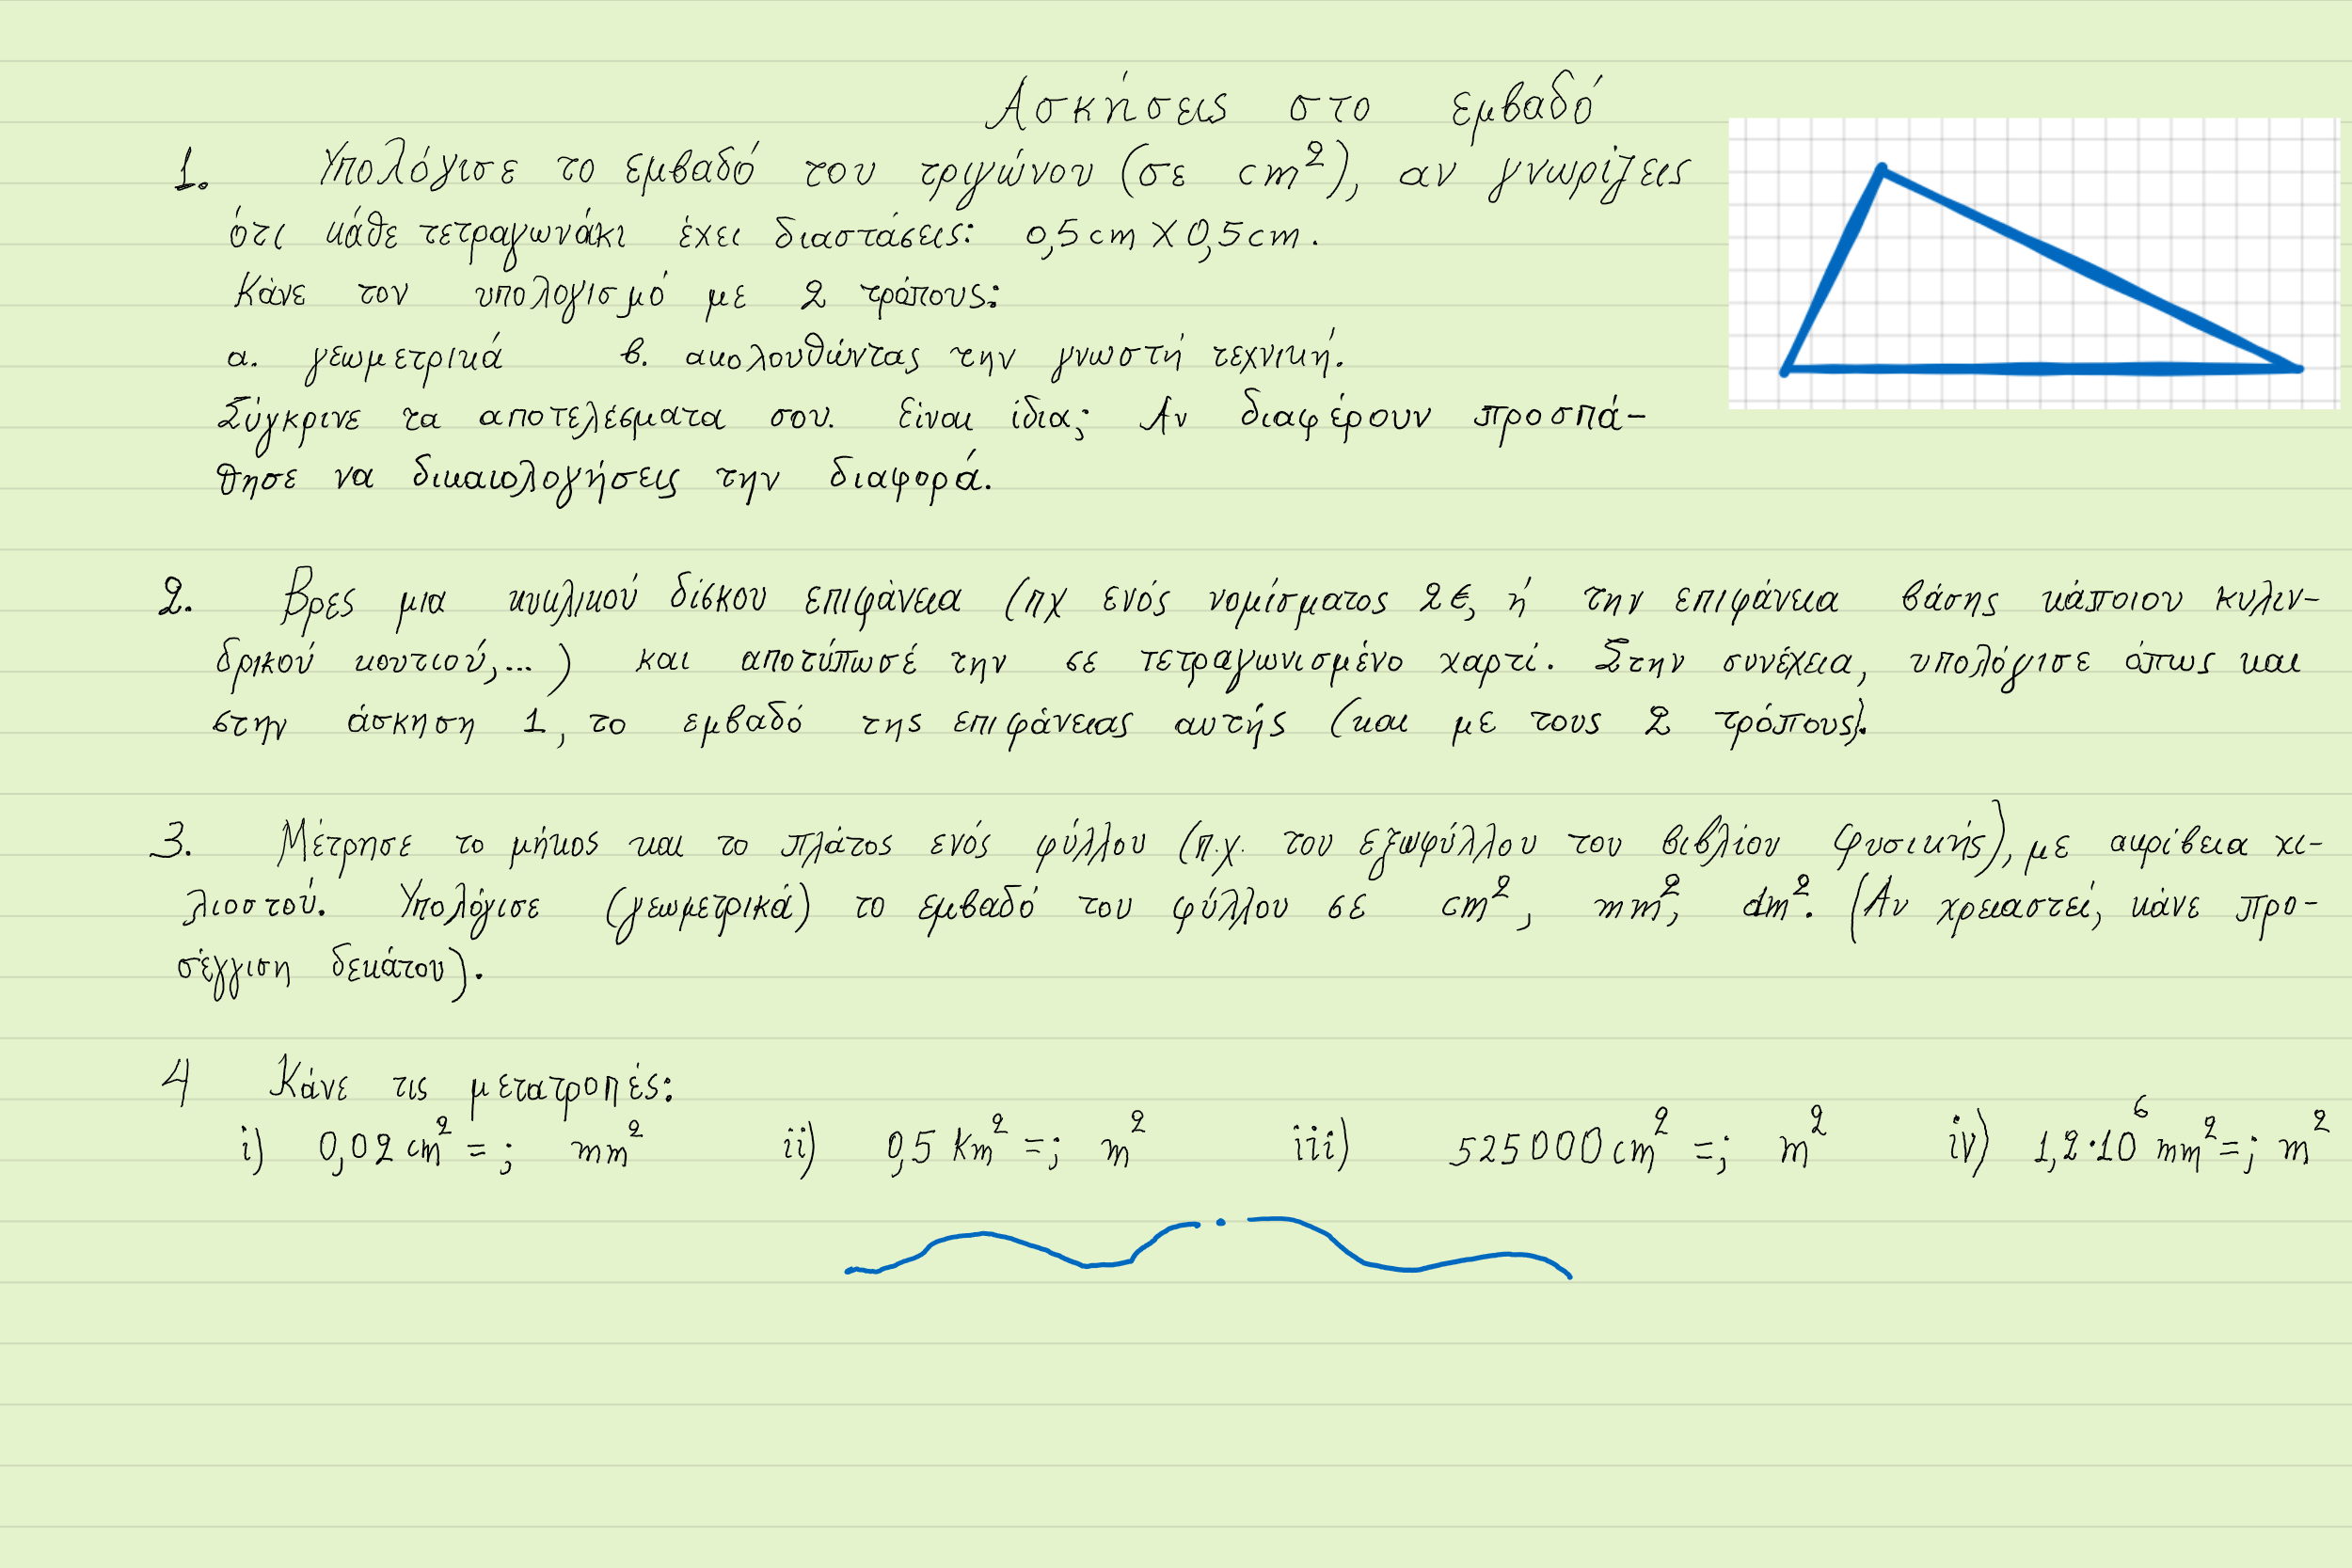 Ασκήσεις στο εμβαδό
1. Υπολόγισε το εμβαδό του τριγώνου (σε cm²), αν γνωρίζεις
ότι κάθε τετραγωνάκι έχει διαστάσεις: 0,5cm X 0,5cm.
Κάνε τον υπολογισμό με 2 τρόπους:
α. γεωμετρικά β. ακολουθώντας την γνωστή τεχνική.
Σύγκρινε τα αποτελέσματα σου. Είναι ίδια; Αν διαφέρουν προσπά-
θησε να δικαιολογήσεις την διαφορά.
2. Βρες μια κυκλικού δίσκου επιφάνεια (πχ ενός νομίσματος 2€, ή την επιφάνεια βάσης κάποιου κυλιν-
δρικού κουτιού,...) και αποτύπωσέ την σε τετραγωνισμένο χαρτί. Στην συνέχεια, υπολόγισε όπως και
στην άσκηση 1, το εμβαδό της επιφάνειας αυτής (και με τους 2 τρόπους).
3. Μέτρησε το μήκος και το πλάτος ενός φύλλου (π.χ. του εξωφύλλου του βιβλίου φυσικής), με ακρίβεια χι-
λιοστού. Υπολόγισε (γεωμετρικά) το εμβαδό του φύλλου σε cm², mm², dm². (Αν χρειαστεί, κάνε προ-
σέγγιση δεκάτου).
4 Κάνε τις μετατροπές:
i) 0,02 cm² = ; mm² ii) 0,5 km² =; m² iii) 525000 cm² =; m² iv) 1,2·10⁶ mm² =; m²